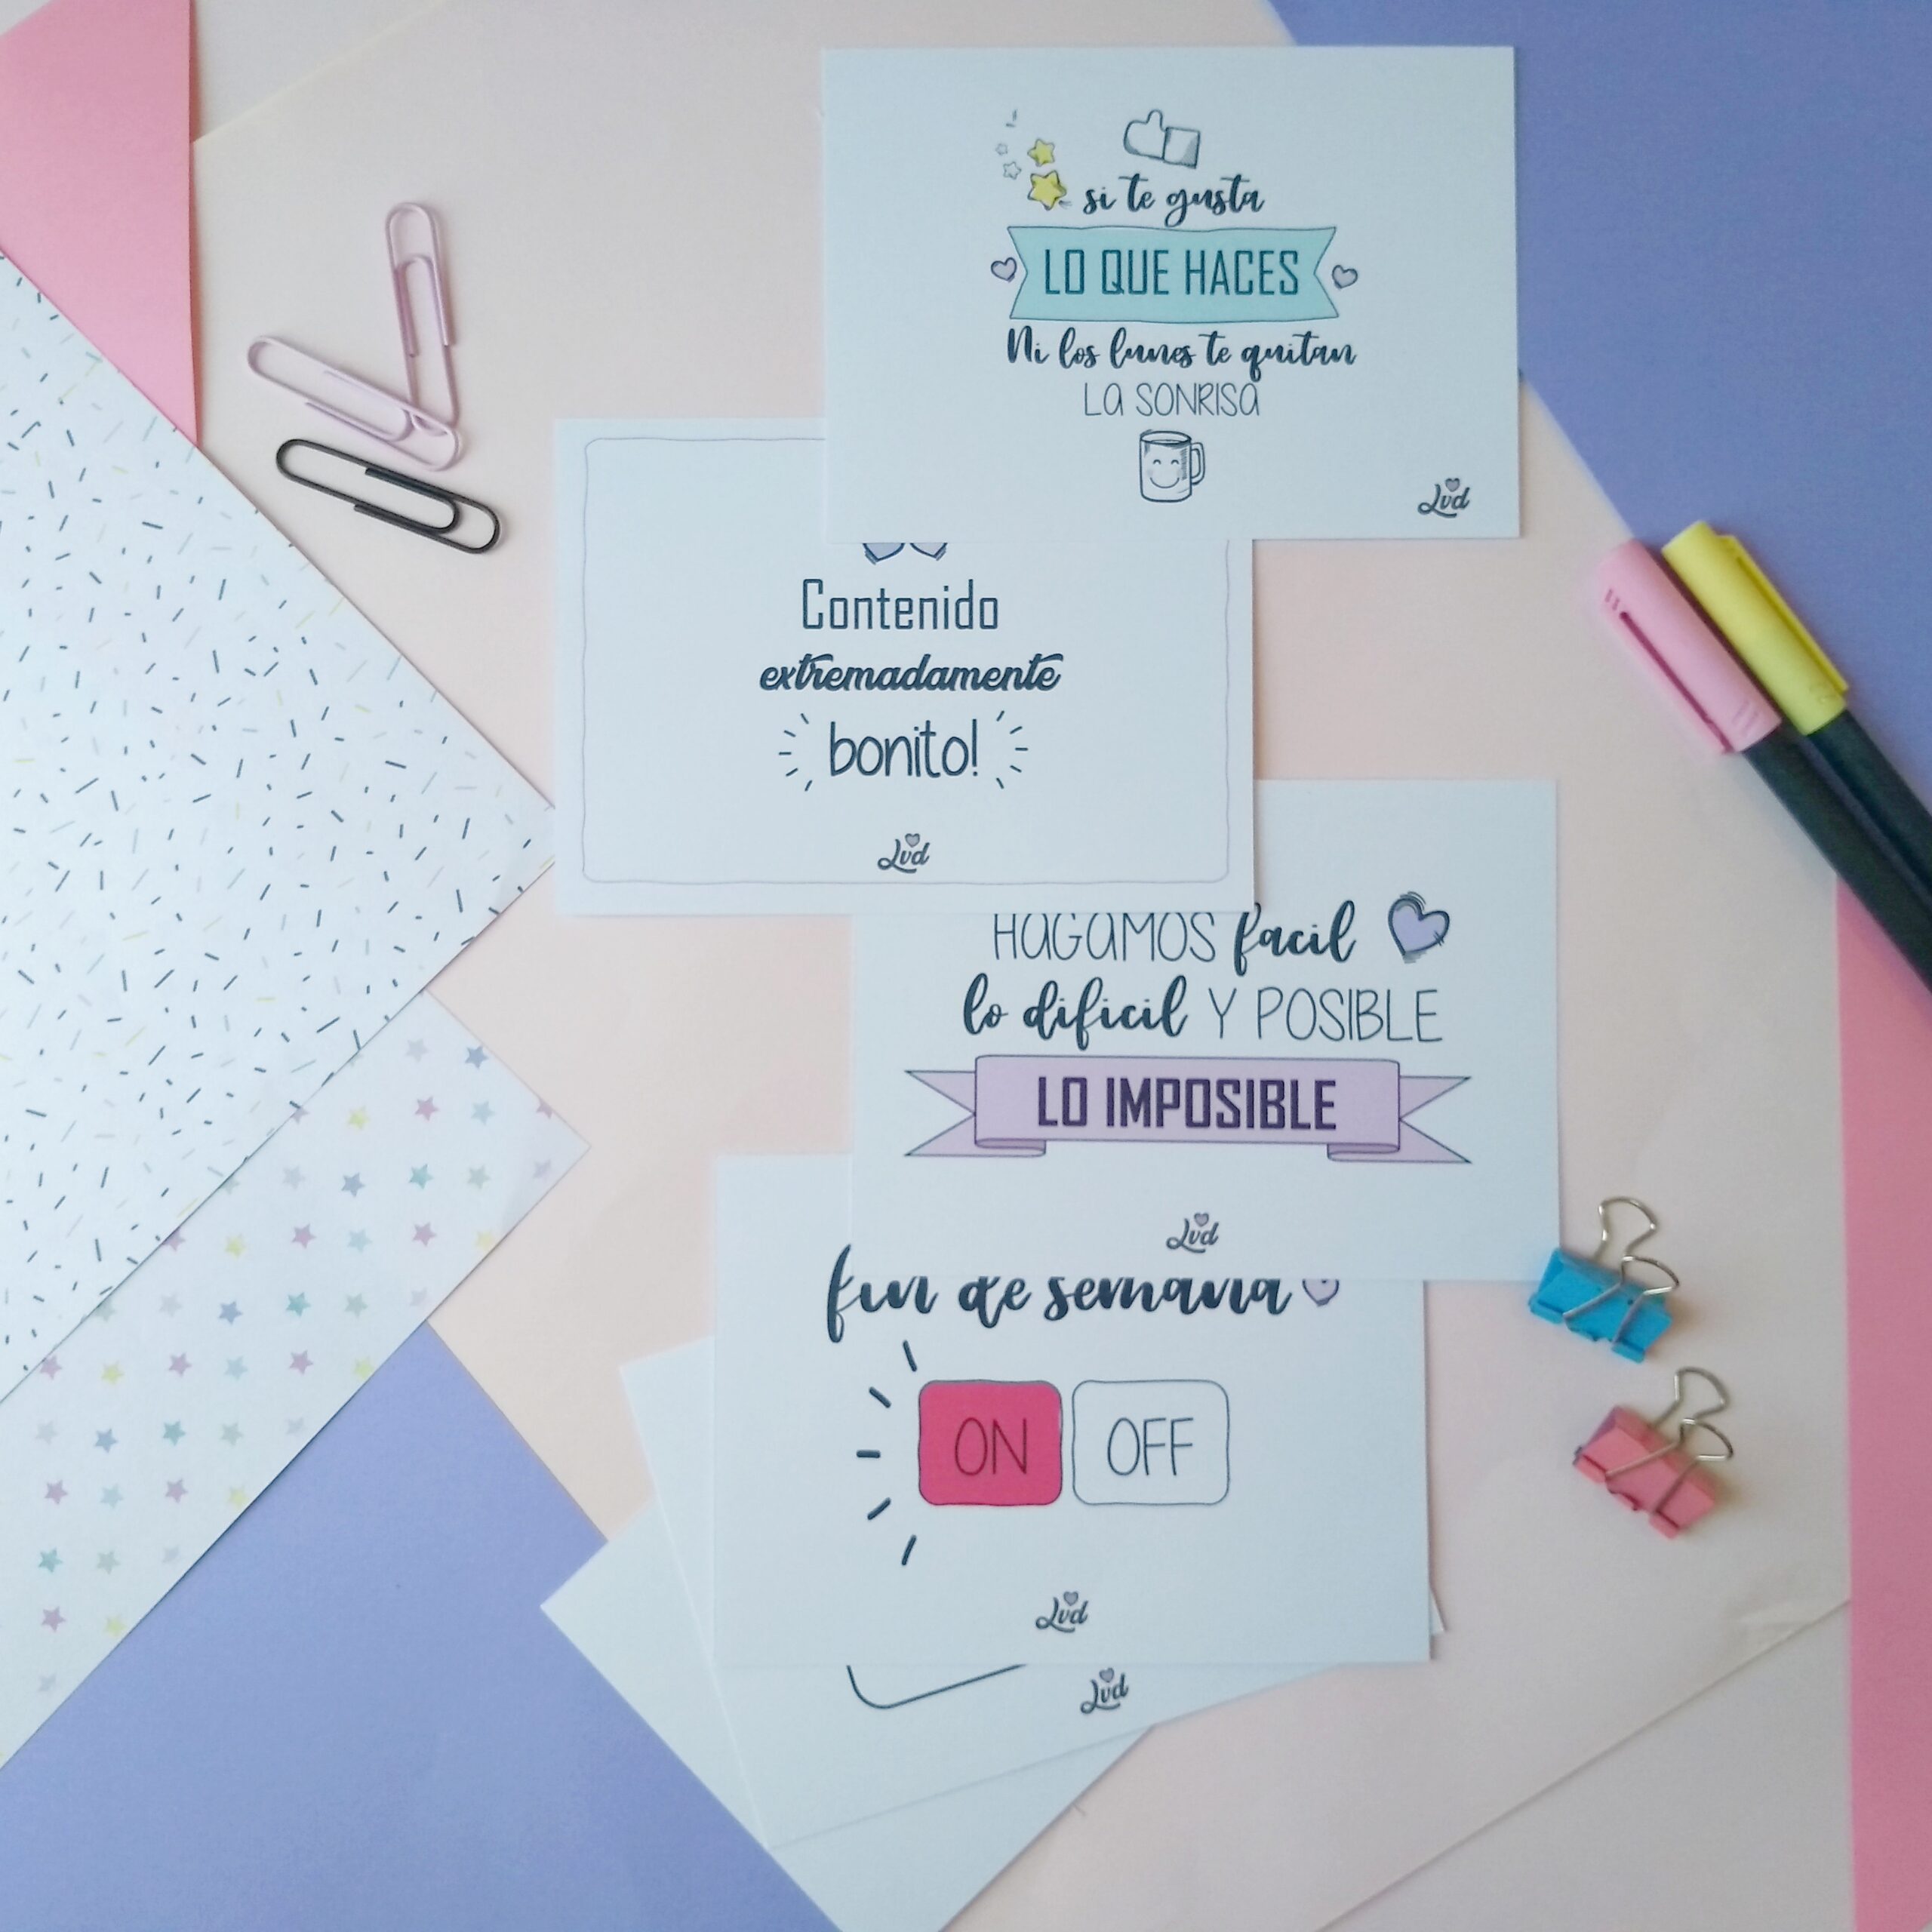 si te gusta
LO QUE HACES
Ni los lunes te quitan
LA SONRISA
Lvd
Contenido
extremadamente
bonito!
Lvd
HAGAMOS facil
lo dificil Y POSIBLE
LO IMPOSIBLE
Lvd
fin de semana
ON OFF
Lvd
Lvd